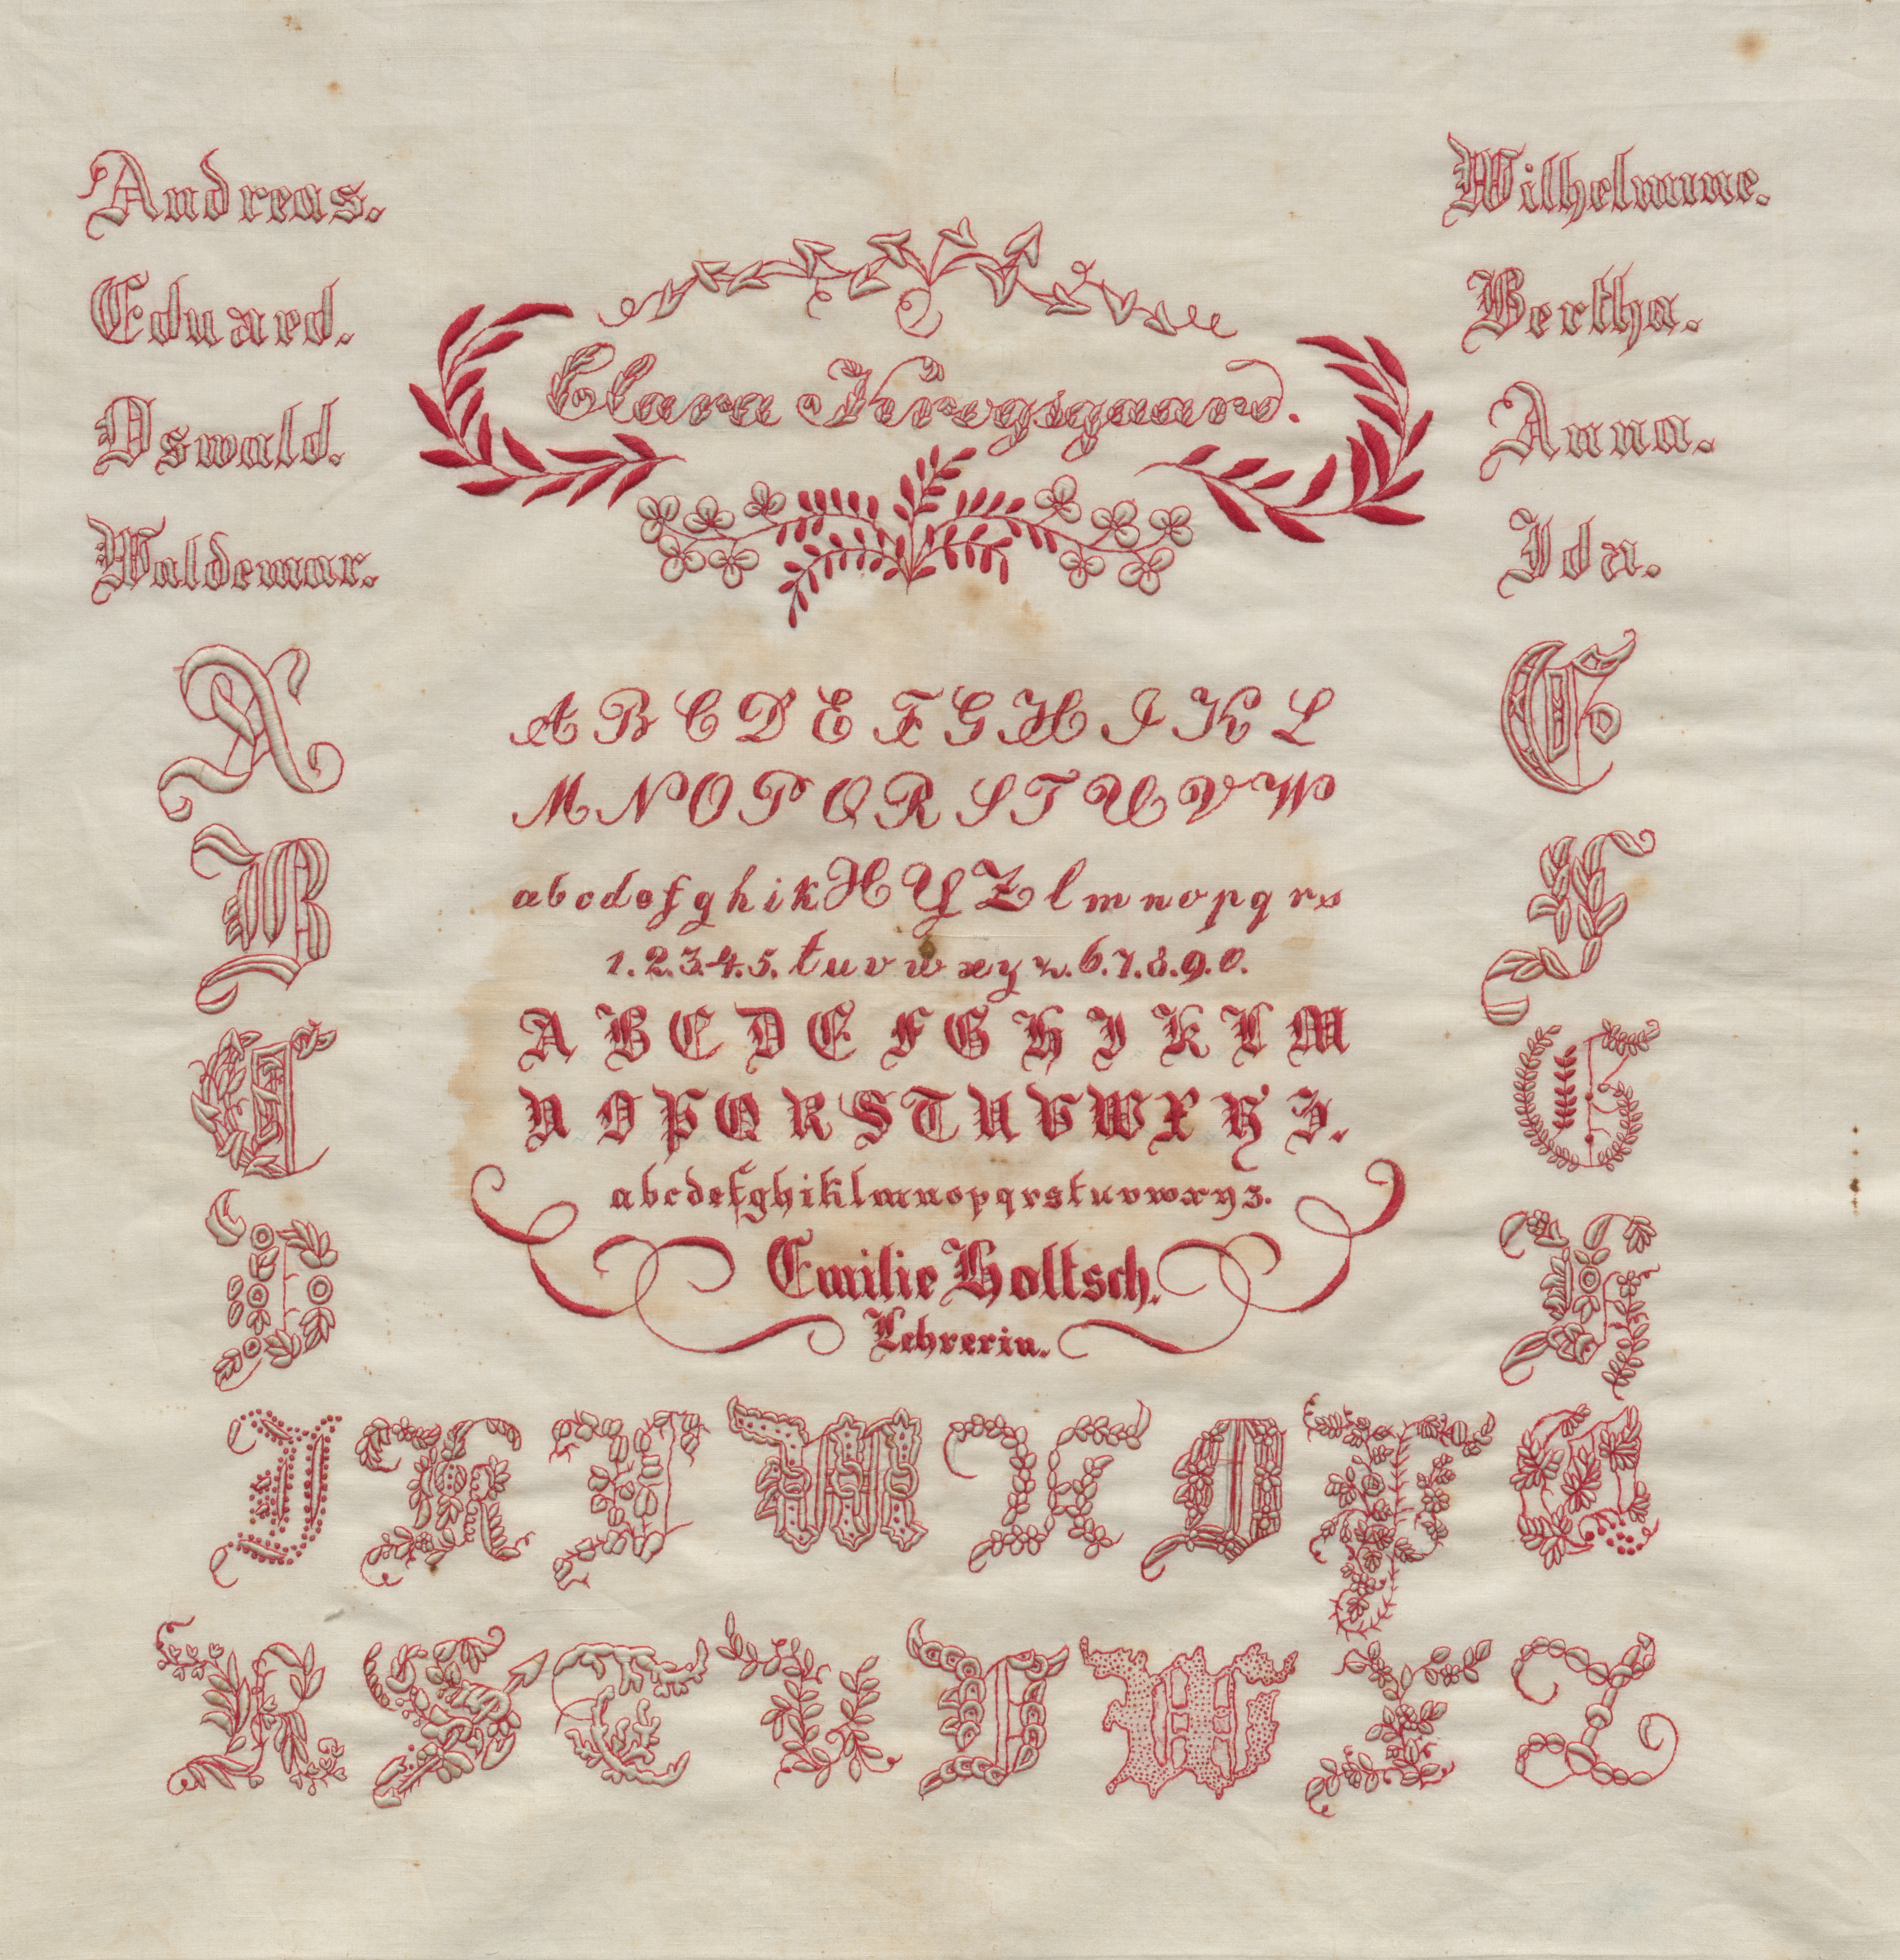 Andreas.
Eduard.
Oswald.
Waldemar.
Wilhelmine.
Bertha.
Anna.
Ida.
Clara Krogsgaard.
A B C D E F G H I K L
M N O P Q R S T U V W
a b c d e f g h i k X Y Z l m n o p q r s
1. 2. 3. 4. 5. t u v w x y z. 6. 7. 8. 9. 0.
A B C D E F G H I K L M
N O P Q R S T U V W X Y Z.
a b c d e f g h i k l m n o p q r s t u v w x y z.
Emilie Holtsch.
Lehrerin.
A
B
C
D
E
F
G
H
I K L M N O P Q
R S T U V W X Z